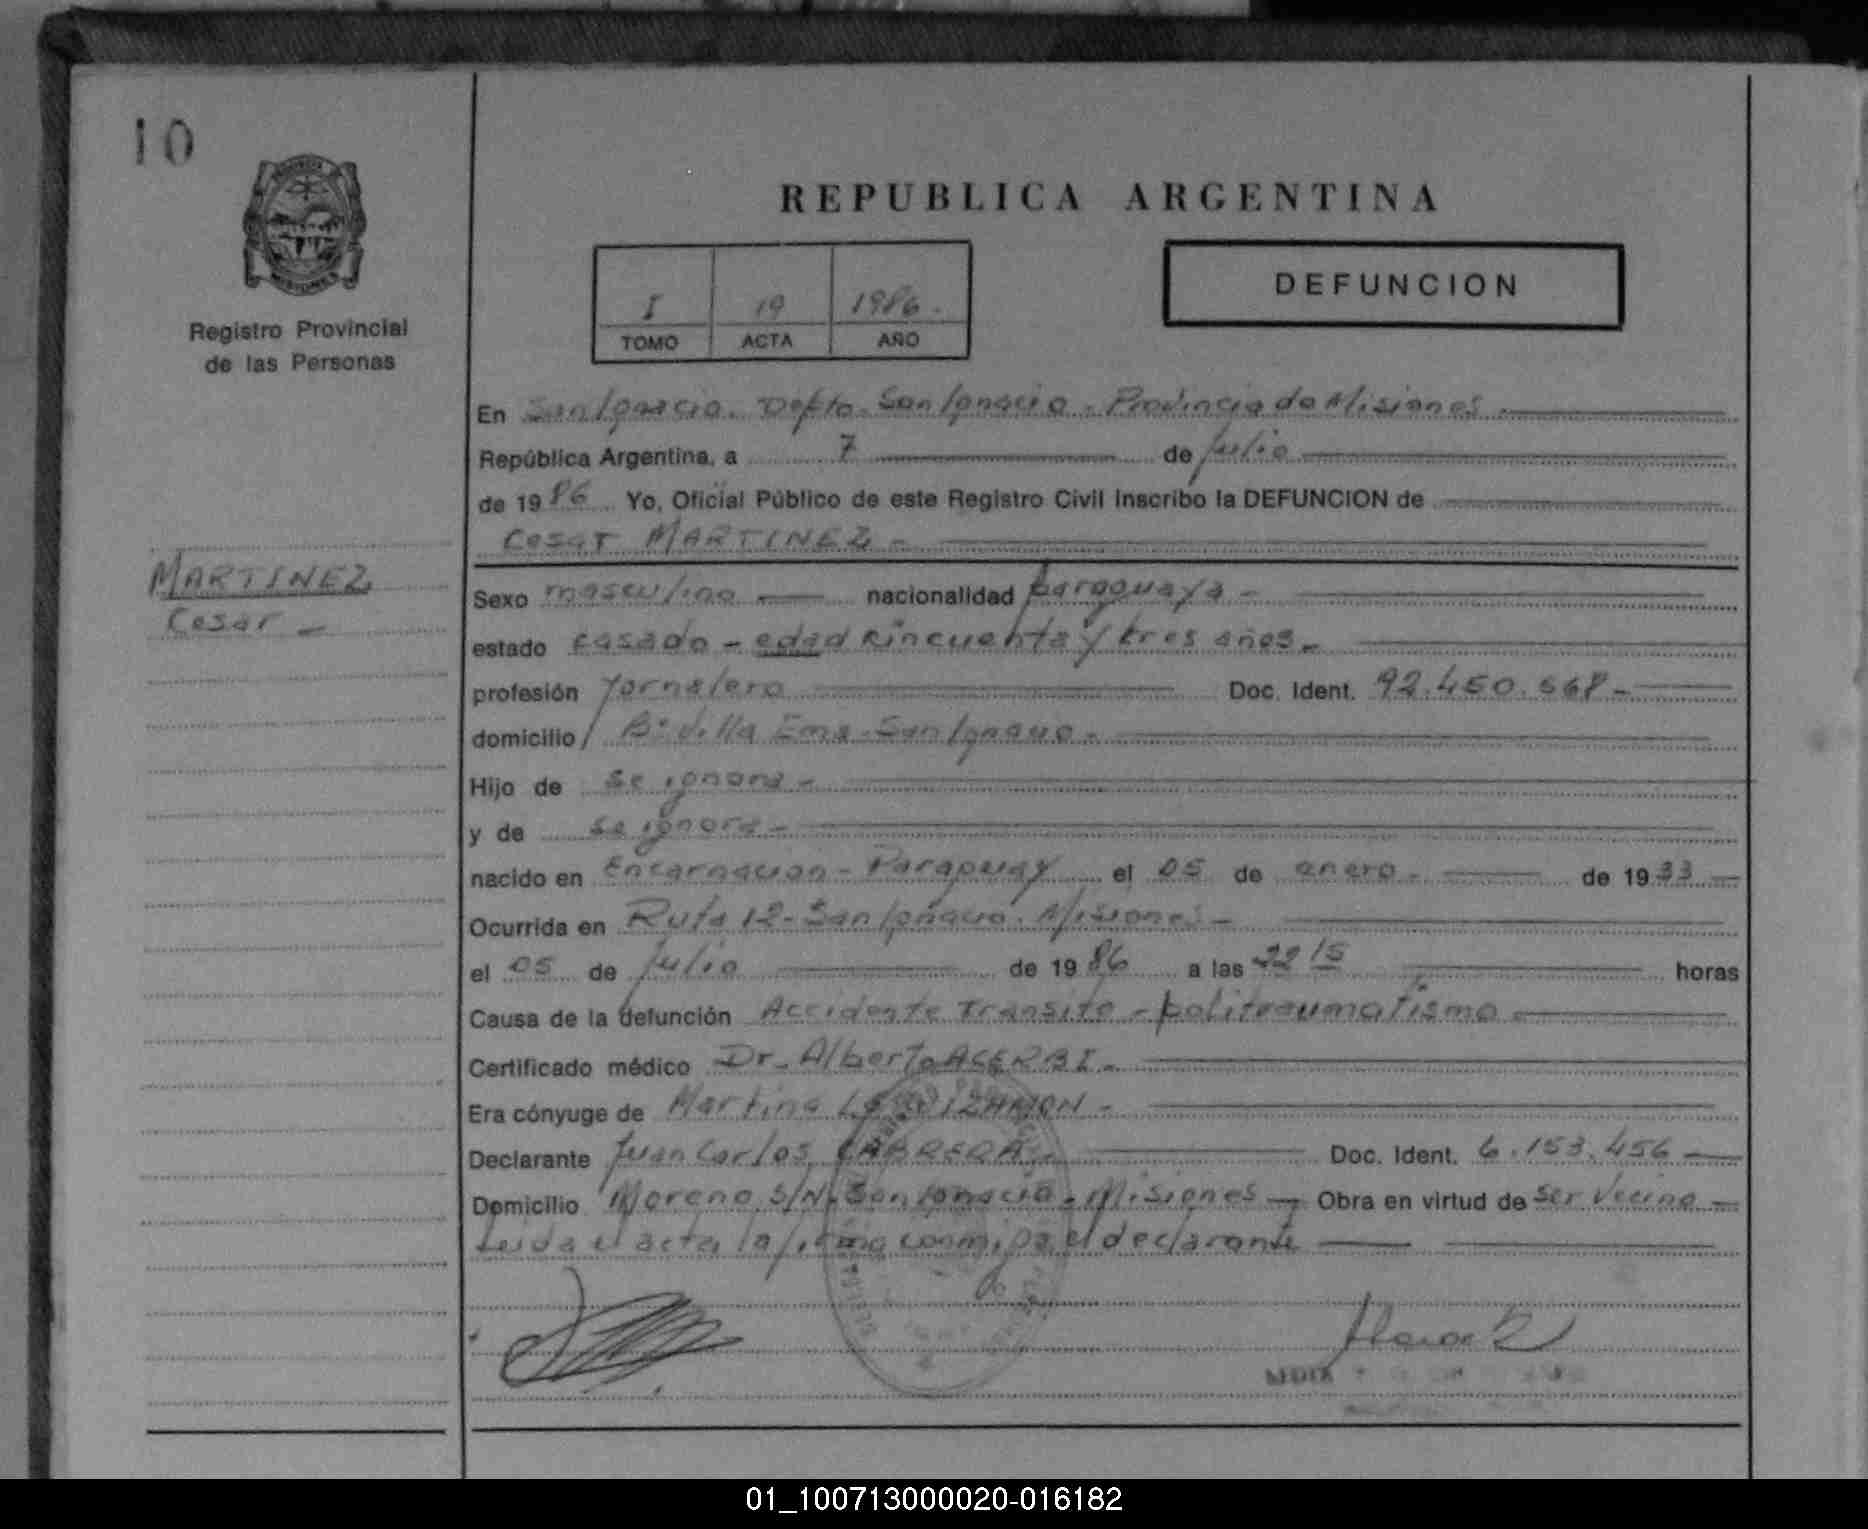 10
REPUBLICA ARGENTINA
I 19 1986.
TOMO ACTA AÑO
DEFUNCION
Registro Provincial
de las Personas
En San Ignacio. Depto. San Ignacio. Provincia de Misiones.
República Argentina, a 7 de julio
de 1986 Yo, Oficial Público de este Registro Civil Inscribo la DEFUNCION de
Cesar MARTINEZ -
MARTINEZ
Cesar -
Sexo masculino nacionalidad paraguaya -
estado casado - edad cincuenta y tres años -
profesión jornalero Doc. Ident. 92.450.568 -
domicilio B° Villa Ema - San Ignacio -
Hijo de se ignora -
y de se ignora -
nacido en Encarnacion - Paraguay el 05 de enero - de 1933
Ocurrida en Ruta 12 - San Ignacio. Misiones -
el 05 de julio de 1986 a las 22 15 horas
Causa de la defunción Accidente Transito - politraumatismo -
Certificado médico Dr. Alberto ACERBI -
Era cónyuge de Martina LEGUIZAMON -
Declarante Juan Carlos CABRERA - Doc. Ident. 6.153.456
Domicilio Moreno S/N - San Ignacio - Misiones Obra en virtud de ser vecino -
Leida el acta, la firma conmigo el declarante
01_100713000020-016182